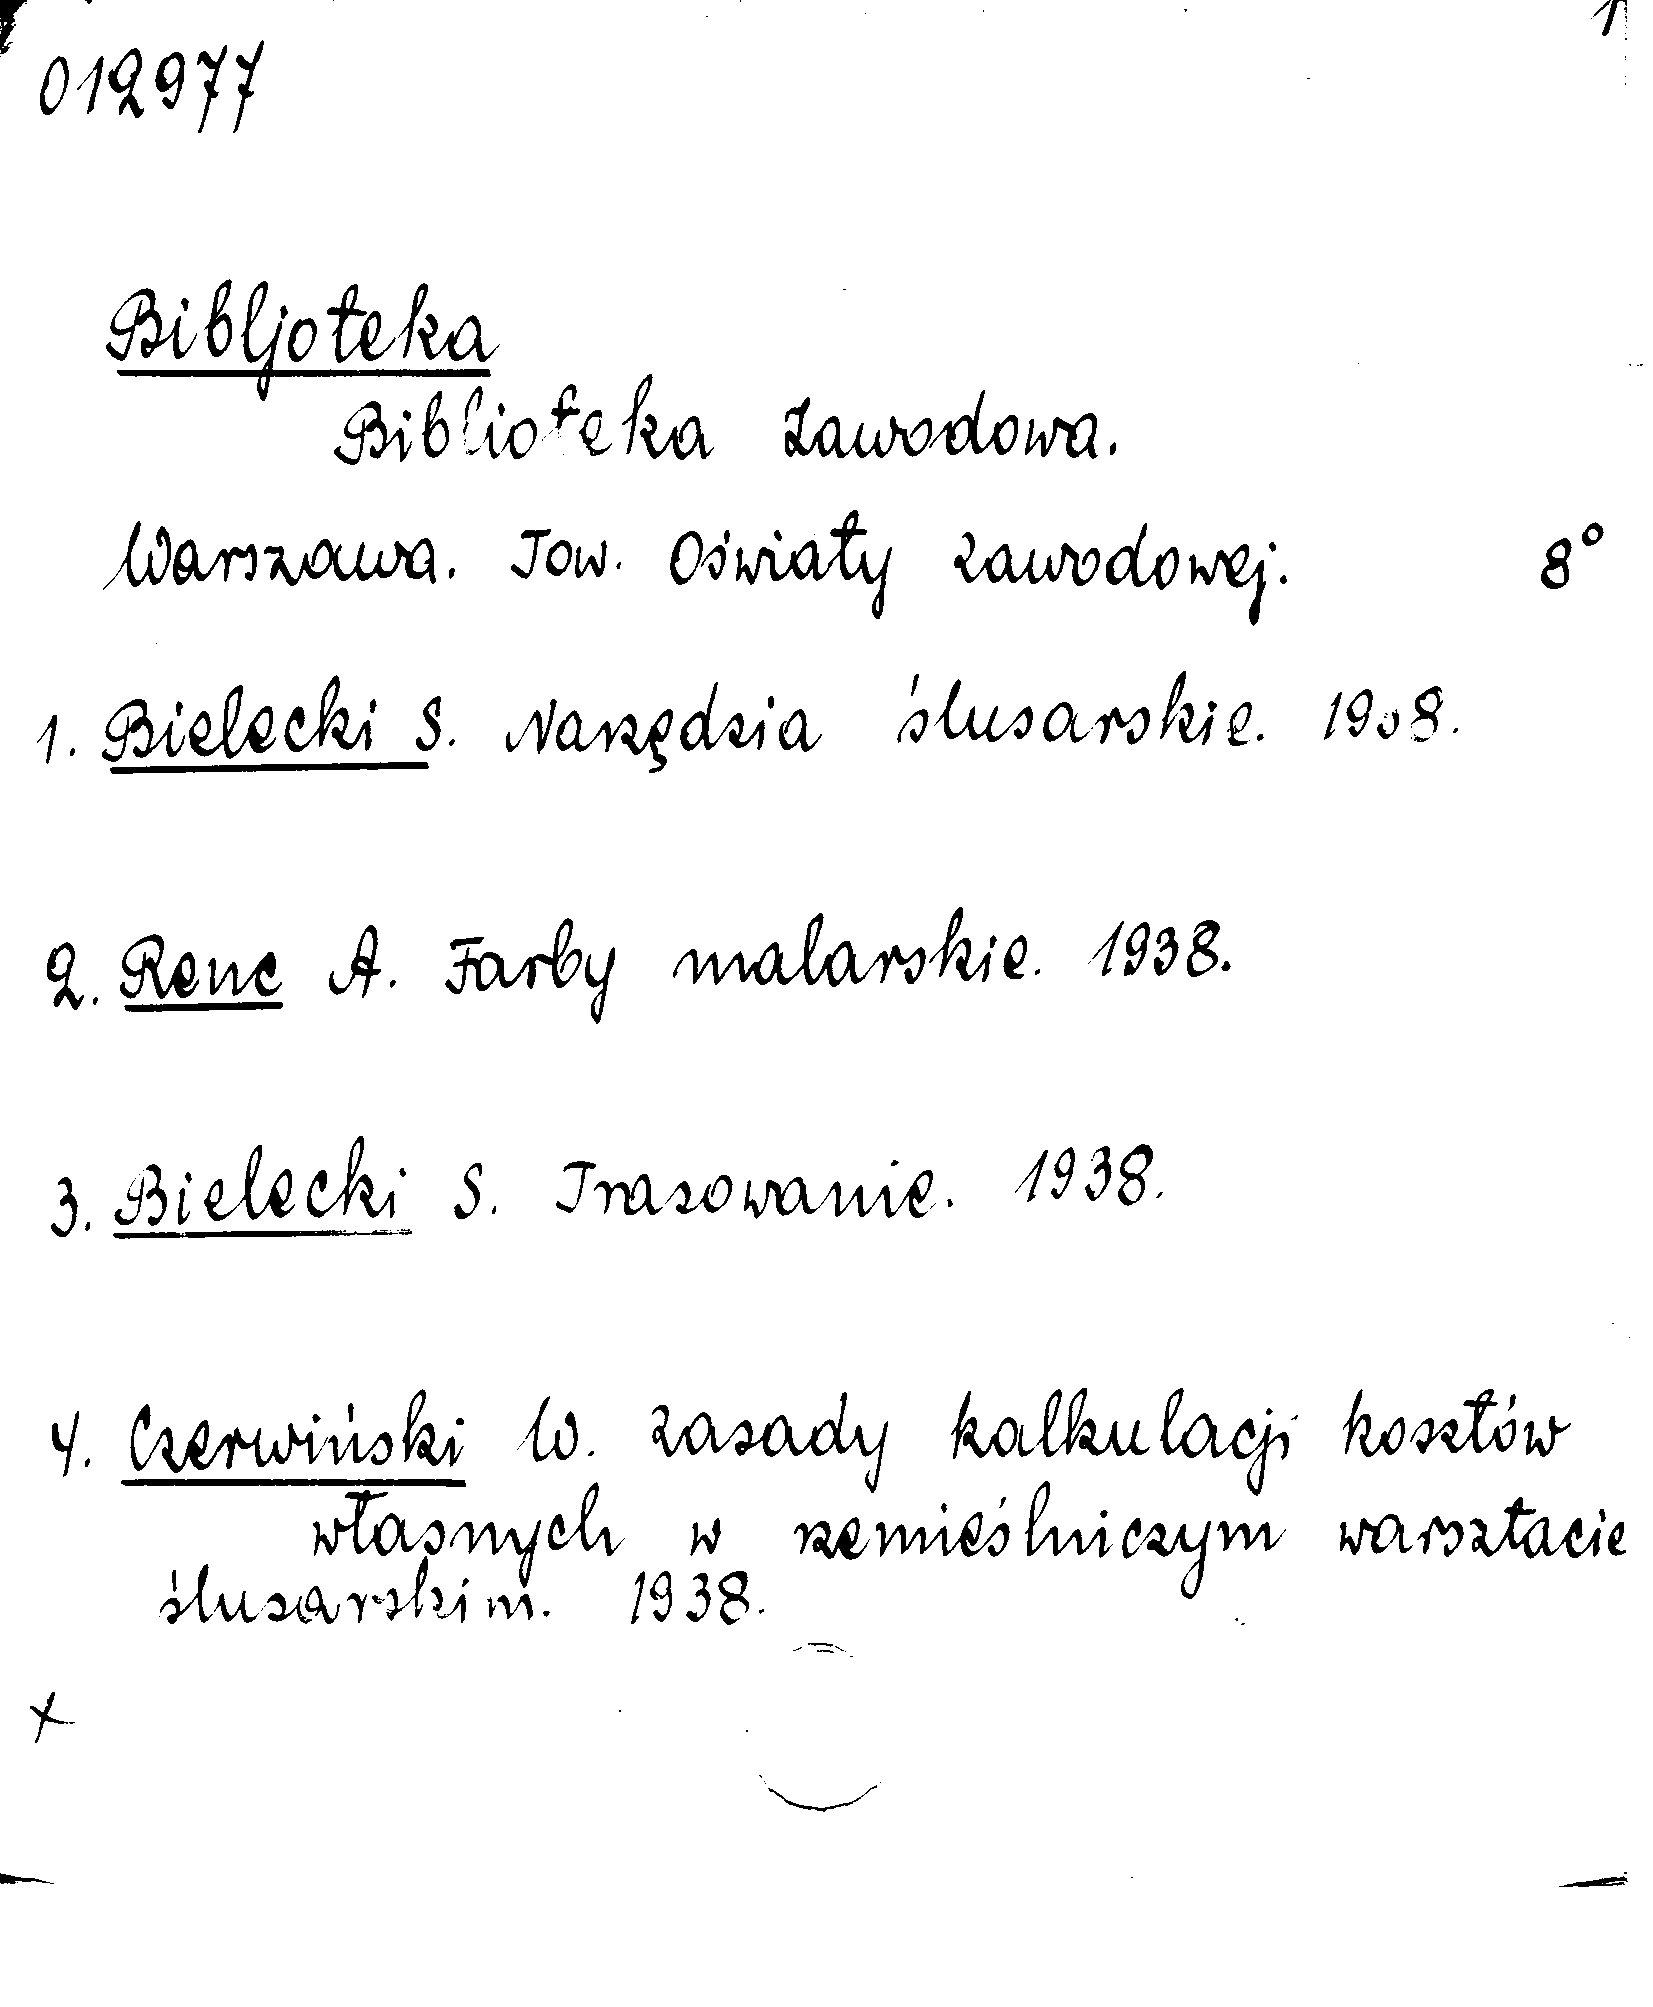 1
012977
Bibljoteka
Biblioteka zawodowa.
Warszawa. Tow. Oświaty zawodowej. 8°
1. Bielecki S. Narzędzia ślusarskie. 1938.
2. Rene A. Farby malarskie. 1938.
3. Bielecki S. Trasowanie. 1938.
4. Czerwiński W. Zasady kalkulacji kosztów
własnych w rzemieślniczym warsztacie
ślusarskim. 1938.
x